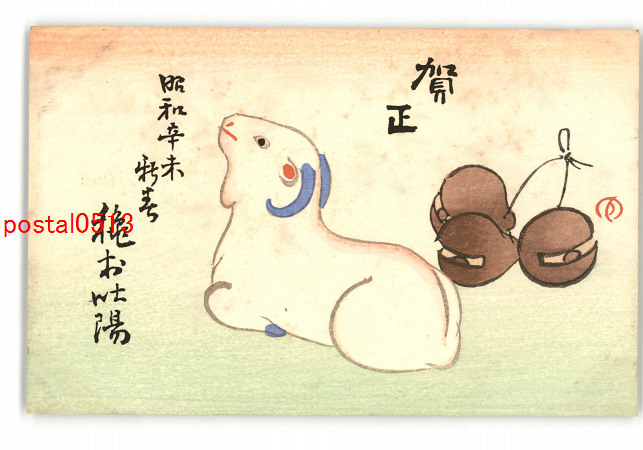 賀
正
昭和辛未
新春
穐村吐陽
postal0513